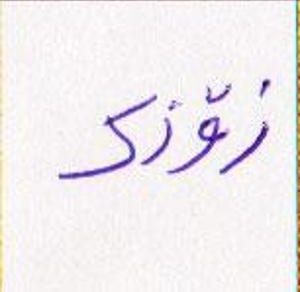 زۆزک